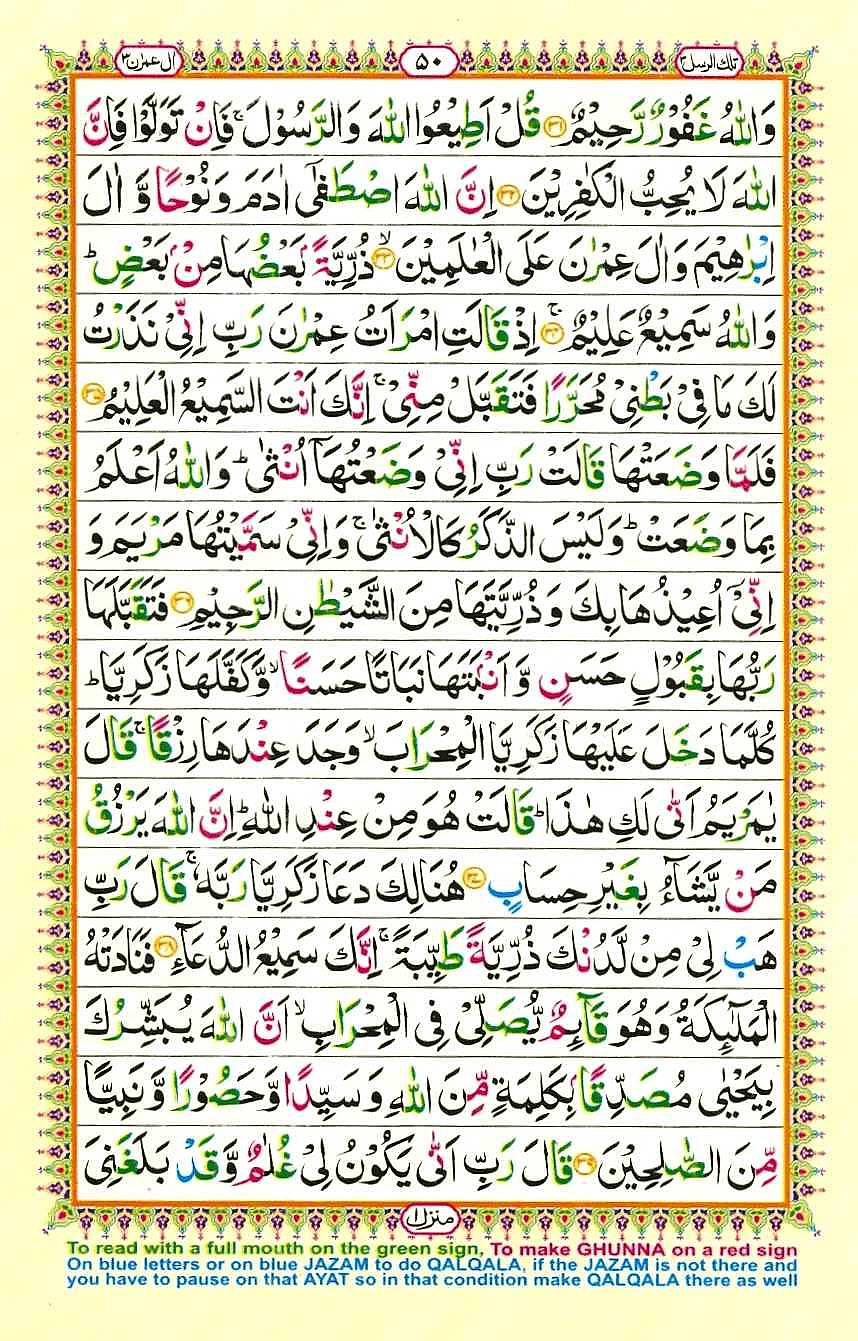 اٰل عمرٰن ٣ ٥٠ تلك الرسل ٣
وَاللّٰهُ غَفُوْرٌ رَّحِيْمٌ ﴿٣١﴾ قُلْ اَطِيْعُوا اللّٰهَ وَالرَّسُوْلَ ۚ فَاِنْ تَوَلَّوْا فَاِنَّ
اللّٰهَ لَا يُحِبُّ الْكٰفِرِيْنَ ﴿٣٢﴾ اِنَّ اللّٰهَ اصْطَفٰٓى اٰدَمَ وَنُوْحًا وَّ اٰلَ
اِبْرٰهِيْمَ وَاٰلَ عِمْرٰنَ عَلَى الْعٰلَمِيْنَ ﴿٣٣﴾ ۙ ذُرِّيَّةًۢ بَعْضُهَا مِنْۢ بَعْضٍ ؕ
وَاللّٰهُ سَمِيْعٌ عَلِيْمٌ ﴿٣٤﴾ ۚ اِذْ قَالَتِ امْرَاَتُ عِمْرٰنَ رَبِّ اِنِّيْ نَذَرْتُ
لَكَ مَا فِيْ بَطْنِيْ مُحَرَّرًا فَتَقَبَّلْ مِنِّيْ ۚ اِنَّكَ اَنْتَ السَّمِيْعُ الْعَلِيْمُ ﴿٣٥﴾
فَلَمَّا وَضَعَتْهَا قَالَتْ رَبِّ اِنِّيْ وَضَعْتُهَاۤ اُنْثٰى ؕ وَاللّٰهُ اَعْلَمُ
بِمَا وَضَعَتْ ؕ وَلَيْسَ الذَّكَرُ كَالْاُنْثٰى ۚ وَاِنِّيْ سَمَّيْتُهَا مَرْيَمَ وَ
اِنِّيْۤ اُعِيْذُهَا بِكَ وَذُرِّيَّتَهَا مِنَ الشَّيْطٰنِ الرَّجِيْمِ ﴿٣٦﴾ فَتَقَبَّلَهَا
رَبُّهَا بِقَبُوْلٍ حَسَنٍ وَّ اَنْۢبَتَهَا نَبَاتًا حَسَنًا ۙ وَّكَفَّلَهَا زَكَرِيَّا ؕ
كُلَّمَا دَخَلَ عَلَيْهَا زَكَرِيَّا الْمِحْرَابَ ۙ وَجَدَ عِنْدَهَا رِزْقًا ۚ قَالَ
يٰمَرْيَمُ اَنّٰى لَكِ هٰذَا ؕ قَالَتْ هُوَ مِنْ عِنْدِ اللّٰهِ ؕ اِنَّ اللّٰهَ يَرْزُقُ
مَنْ يَّشَآءُ بِغَيْرِ حِسَابٍ ﴿٣٧﴾ هُنَالِكَ دَعَا زَكَرِيَّا رَبَّهٗ ۚ قَالَ رَبِّ
هَبْ لِيْ مِنْ لَّدُنْكَ ذُرِّيَّةً طَيِّبَةً ۚ اِنَّكَ سَمِيْعُ الدُّعَآءِ ﴿٣٨﴾ فَنَادَتْهُ
الْمَلٰٓئِكَةُ وَهُوَ قَآئِمٌ يُّصَلِّيْ فِي الْمِحْرَابِ ۙ اَنَّ اللّٰهَ يُبَشِّرُكَ
بِيَحْيٰى مُصَدِّقًۢا بِكَلِمَةٍ مِّنَ اللّٰهِ وَسَيِّدًا وَّحَصُوْرًا وَّنَبِيًّا
مِّنَ الصّٰلِحِيْنَ ﴿٣٩﴾ قَالَ رَبِّ اَنّٰى يَكُوْنُ لِيْ غُلٰمٌ وَّقَدْ بَلَغَنِيَ
منزل ١
To read with a full mouth on the green sign, To make GHUNNA on a red sign
On blue letters or on blue JAZAM to do QALQALA, if the JAZAM is not there and
you have to pause on that AYAT so in that condition make QALQALA there as well